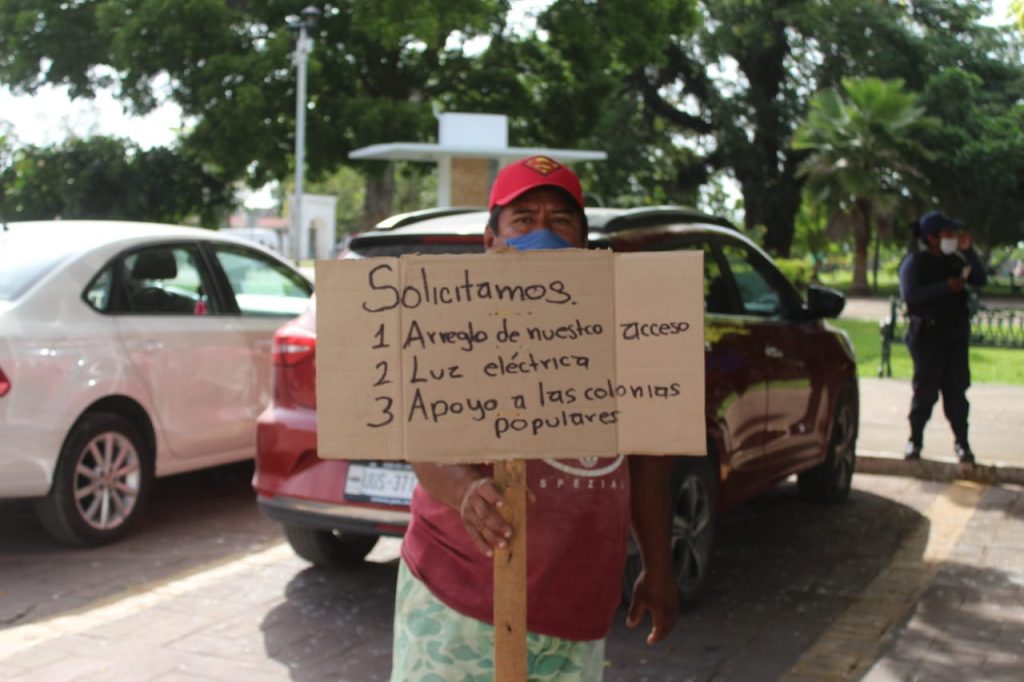 Solicitamos.
1 Arreglo de nuestro acceso
2 Luz eléctrica
3 Apoyo a las colonias
populares
UUS-371
SPEZIAL